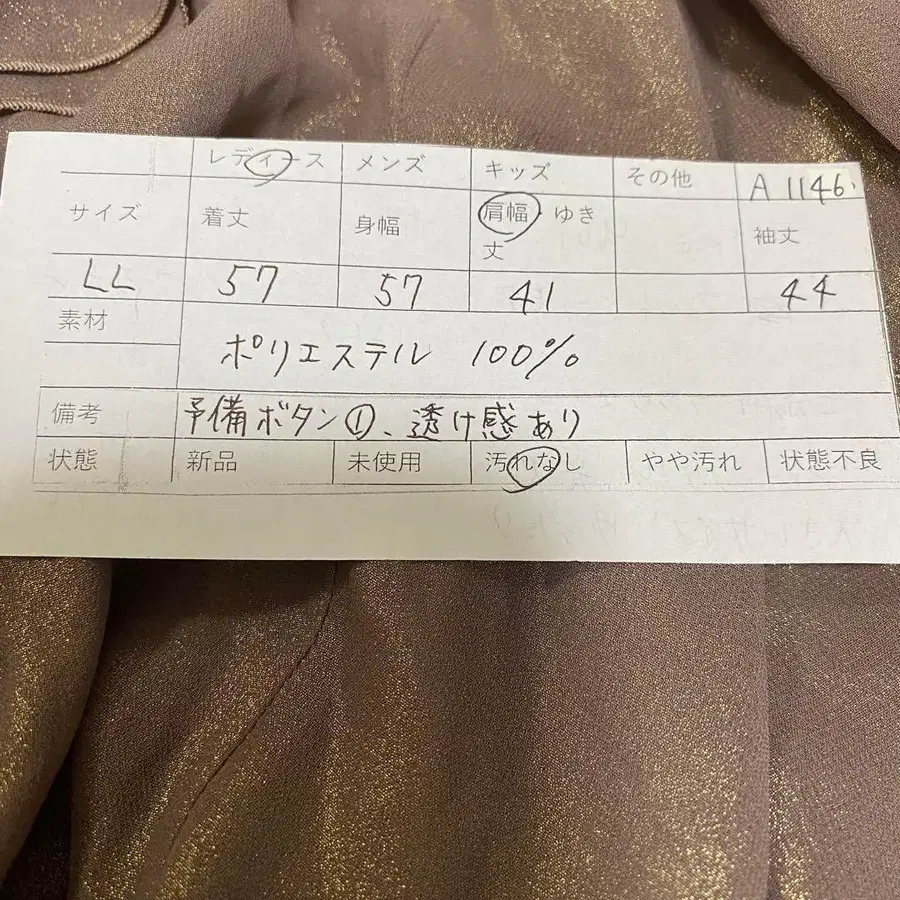 レディース メンズ キッズ その他 A 1146
サイズ 着丈 身幅 肩幅・ゆき丈 袖丈
LL 57 57 41 44
素材 ポリエステル 100%
備考 予備ボタン①、透け感あり
状態 新品 未使用 汚れなし やや汚れ 状態不良